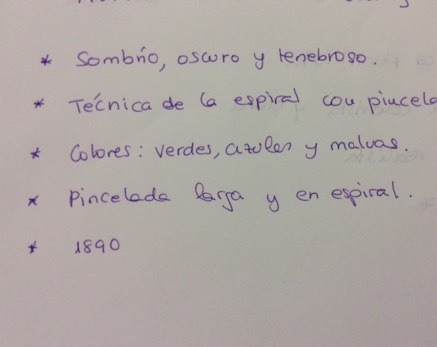 * Sombrío, oscuro y tenebroso.
* Técnica de la espiral con pincela
* Colores: verdes, azules y malvas.
* Pincelada larga y en espiral.
* 1890